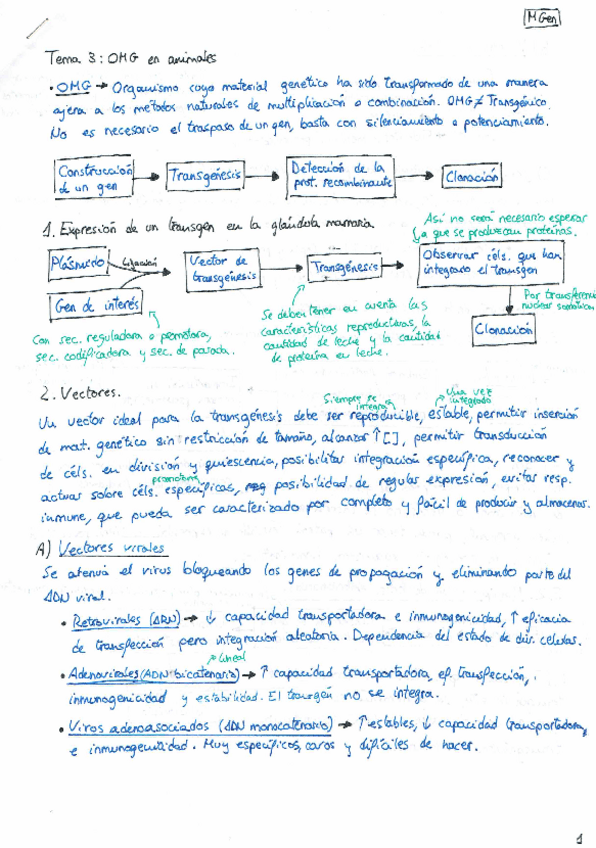 MGen
Tema 3: OMG en animales
• OMG → Organismo cuyo material genético ha sido transformado de una manera
ajena a los métodos naturales de multiplicación o combinación. OMG ≠ Transgénico
No es necesario el traspaso de un gen, basta con silenciamiento o potenciamiento.
Construcción de un gen → Transgénesis → Detección de la prot. recombinante → Clonación
1. Expresión de un transgen en la glándula mamaria
Así no será necesario esperar
a que se produzcan proteínas.
Plásmido Ligación Vector de transgénesis → Transgénesis → Observar céls. que han integrado el transgen
Gen de interés
Por transferencia
nuclear somática
Clonación
Con sec. reguladora o promotora,
sec. codificadora y sec. de parada.
Se deben tener en cuenta las
características reproductivas, la
cantidad de leche y la cantidad
de proteína en leche.
2. Vectores.
Siempre se integra
Una vez integrado
Un vector ideal para la transgénesis debe ser reproducible, estable, permitir inserción
de mat. genético sin restricción de tamaño, alcanzar ↑[ ], permitir transducción
de céls. en división y quiescencia, posibilitar integración específica, reconocer y
promotores
actuar sobre céls. específicas, posibilidad de regular expresión, evitar resp.
inmune, que pueda ser caracterizado por completo y fácil de producir y almacenar.
A) Vectores virales
Se atenúa el virus bloqueando los genes de propagación y eliminando parte del
ADN viral.
• Retrovirales (ARN) → ↓ capacidad transportadora e inmunogenicidad, ↑ eficacia
de transfección pero integración aleatoria. Dependencia del estado de div. celular.
lineal
• Adenovirales (ADN bicatenario) → ↑ capacidad transportadora, ef. transfección,
inmunogenicidad y estabilidad. El transgén no se integra.
• Virus adenoasociados (ADN monocatenario) → ↑ estables, ↓ capacidad transportadora
e inmunogenicidad. Muy específicos, caros y difíciles de hacer.
1